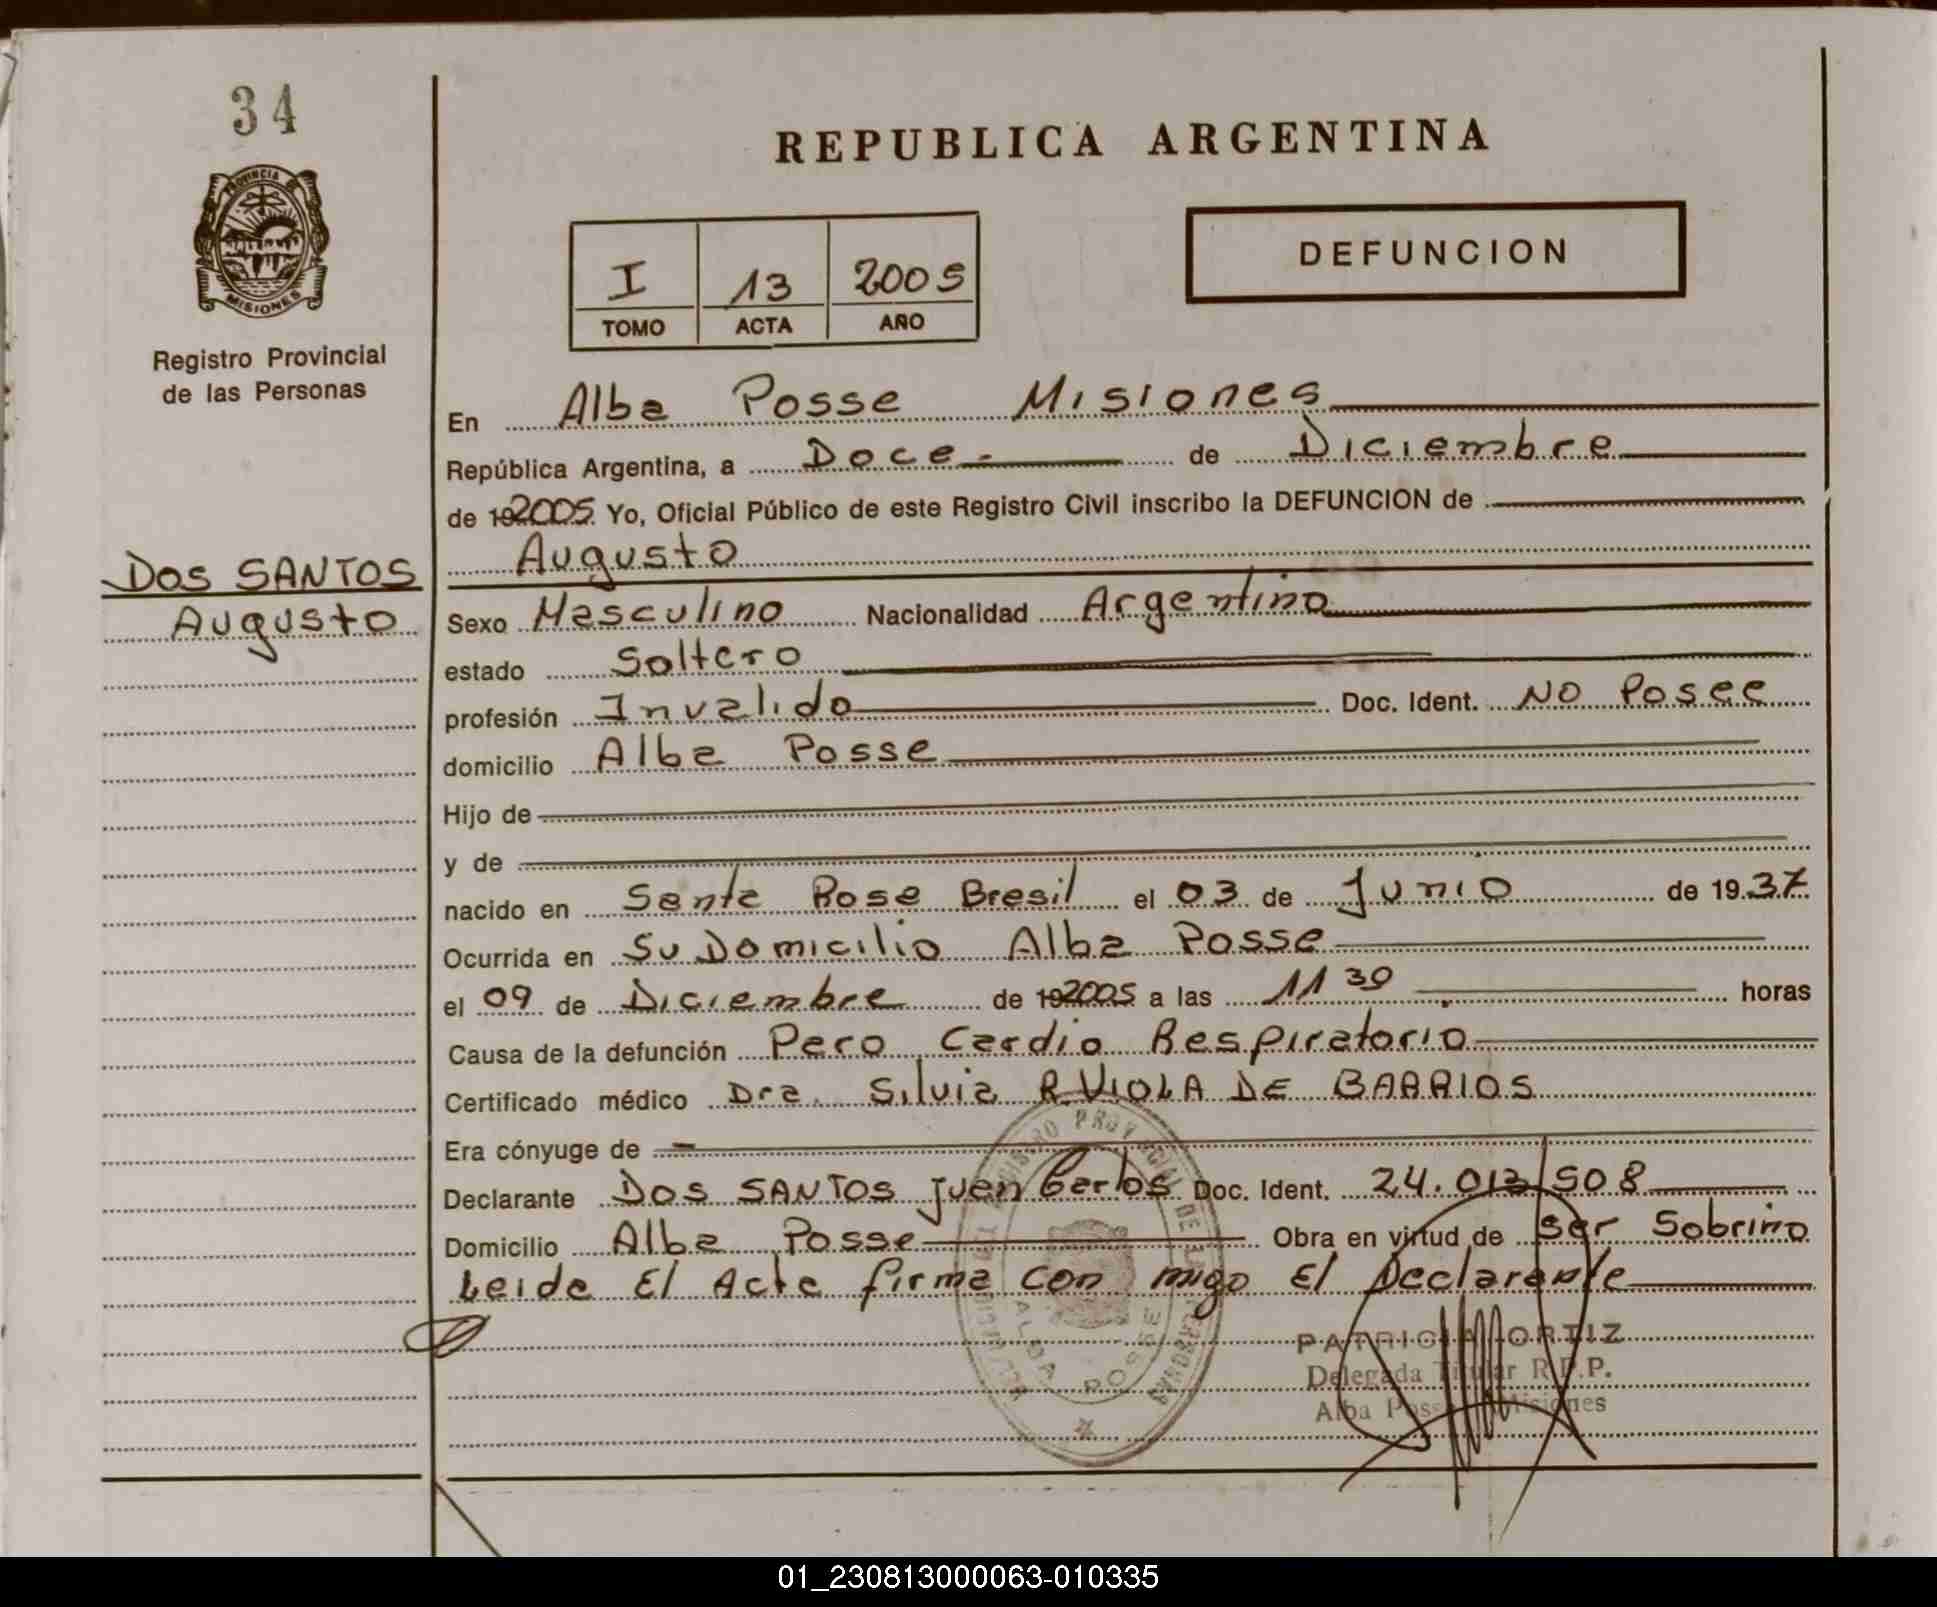 34
REPUBLICA ARGENTINA
PROVINCIA DE
MISIONES
Registro Provincial
de las Personas
DEFUNCION
I 13 2005
TOMO ACTA AÑO
En Alba Posse Misiones
República Argentina, a Doce de Diciembre
de 192005 Yo, Oficial Público de este Registro Civil inscribo la DEFUNCION de
DOS SANTOS
Augusto
Augusto
Sexo Masculino Nacionalidad Argentino
estado Soltero
profesión Invalido Doc. Ident. No Posee
domicilio Alba Posse
Hijo de
y de
nacido en Santa Rosa Brasil el 03 de Junio de 1937
Ocurrida en Su Domicilio Alba Posse
el 09 de Diciembre de 192005 a las 11 30 horas
Causa de la defunción Paro Cardio Respiratorio
Certificado médico Dra. Silvia R VIOLA DE BARRIOS
Era cónyuge de
Declarante DOS SANTOS Juan Carlos Doc. Ident. 24.013508
Domicilio Alba Posse Obra en virtud de Ser Sobrino
Leida El Acta firma con migo El Declarante
REGISTRO PROVINCIAL DE LAS PERSONAS
ALBA POSSE
PATRICIA ORTIZ
Delegada Titular R.P.P.
Alba Posse Misiones
01_230813000063-010335